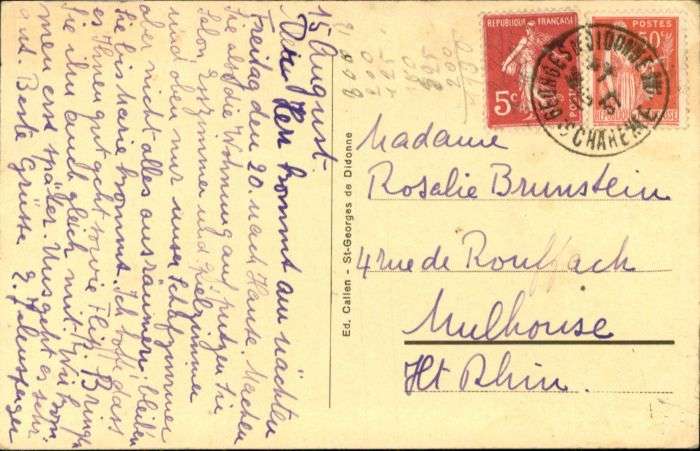 15 August.
Der Herr kommt am nächsten
Freitag den 20. nach Hause. Machen
Sie also die Wohnung auf, putzen Sie
Salon, Esszimmer und
und oben nur unser Schlafzimmer
aber nicht alles ausräumen, bleiben
Sie bis Marie kommt. Ich hoffe dass
es Ihnen gut geht sowie Flick. Bringen
Sie ihn auch gleich mit. Wir kom
men erst später. Uns geht es sehr
gut. Beste Grüsse E.
Ed. Callen - St-Georges de Didonne
REPUBLIQUE FRANÇAISE
5c
POSTES
POSTES
50c
GEORGES DE DIDONNE
CHARENTE
37
Madame
Rosalie Brunstein
4 rue de Rouffach
Mulhouse
Ht Rhin.